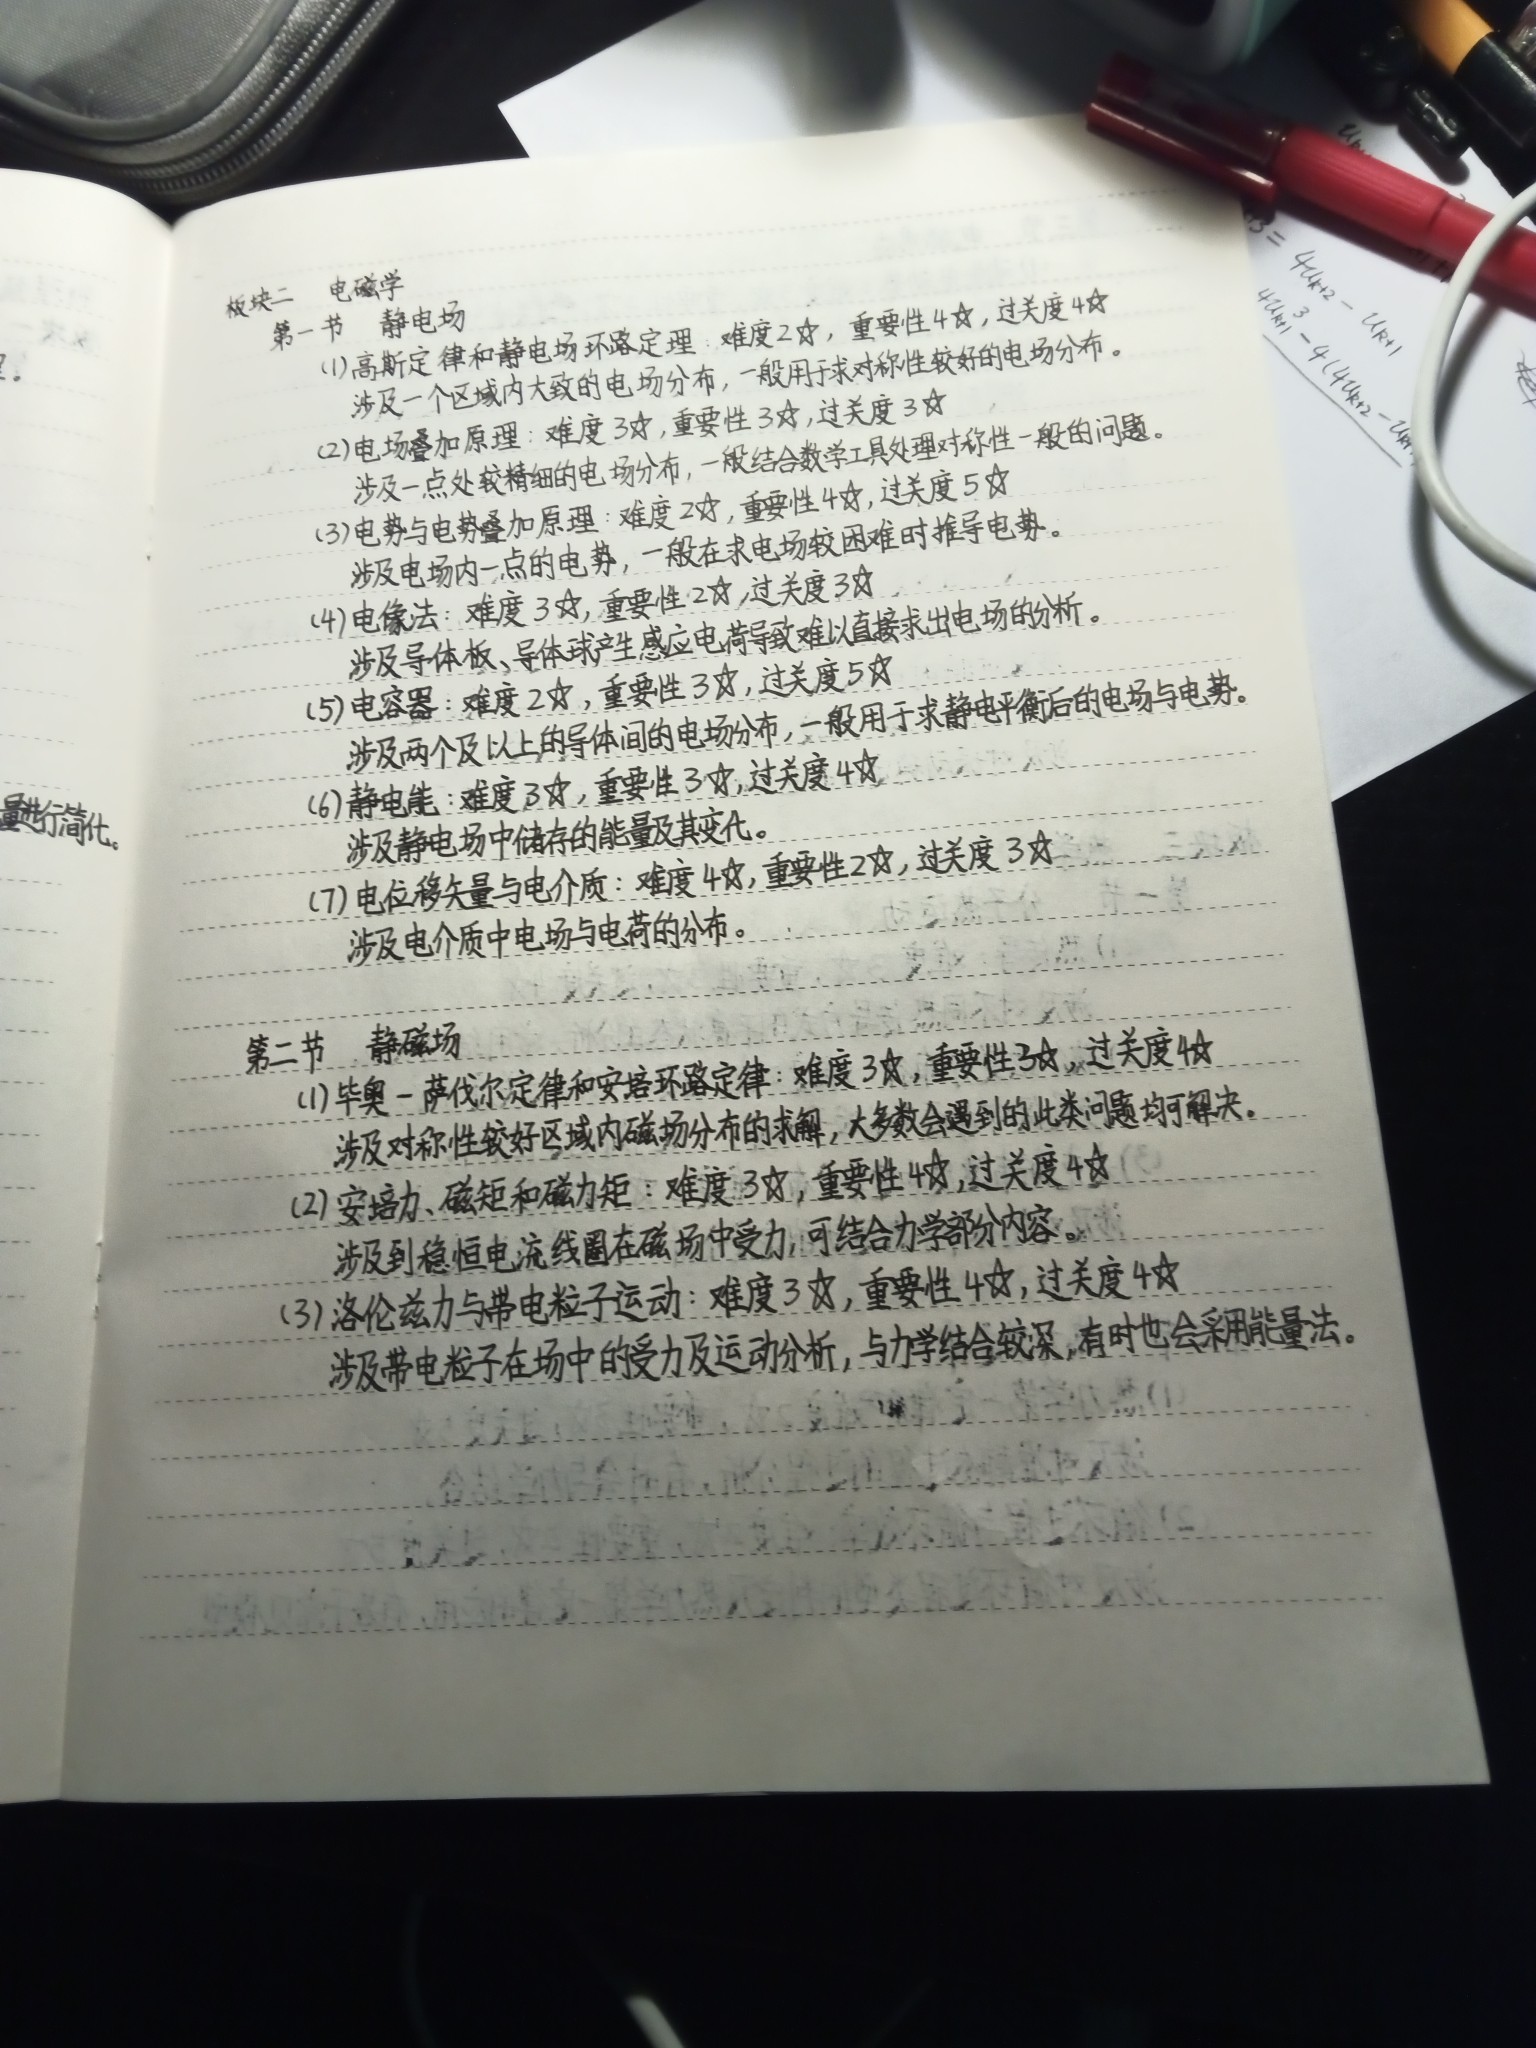 板块二 电磁学
第一节 静电场
(1)高斯定律和静电场环路定理：难度2☆，重要性4☆，过关度4☆
涉及一个区域内大致的电场分布，一般用于求对称性较好的电场分布。
(2)电场叠加原理：难度3☆，重要性3☆，过关度3☆
涉及一点处较精细的电场分布，一般结合数学工具处理对称性一般的问题。
(3)电势与电势叠加原理：难度2☆，重要性4☆，过关度5☆
涉及电场内一点的电势，一般在求电场较困难时推导电势。
(4)电像法：难度3☆，重要性2☆，过关度3☆
涉及导体板、导体球产生感应电荷导致难以直接求出电场的分析。
(5)电容器：难度2☆，重要性3☆，过关度5☆
涉及两个及以上的导体间的电场分布，一般用于求静电平衡后的电场与电势。
(6)静电能：难度3☆，重要性3☆，过关度4☆
涉及静电场中储存的能量及其变化。
(7)电位移矢量与电介质：难度4☆，重要性2☆，过关度3☆
涉及电介质中电场与电荷的分布。
第二节 静磁场
(1)毕奥-萨伐尔定律和安培环路定律：难度3☆，重要性3☆，过关度4☆
涉及对称性较好区域内磁场分布的求解，大多数会遇到的此类问题均可解决。
(2)安培力、磁矩和磁力矩：难度3☆，重要性4☆，过关度4☆
涉及到稳恒电流线圈在磁场中受力，可结合力学部分内容。
(3)洛伦兹力与带电粒子运动：难度3☆，重要性4☆，过关度4☆
涉及带电粒子在场中的受力及运动分析，与力学结合较深，有时也会采用能量法。
量进行简化。
4u_{k+2} - u_{k+1}